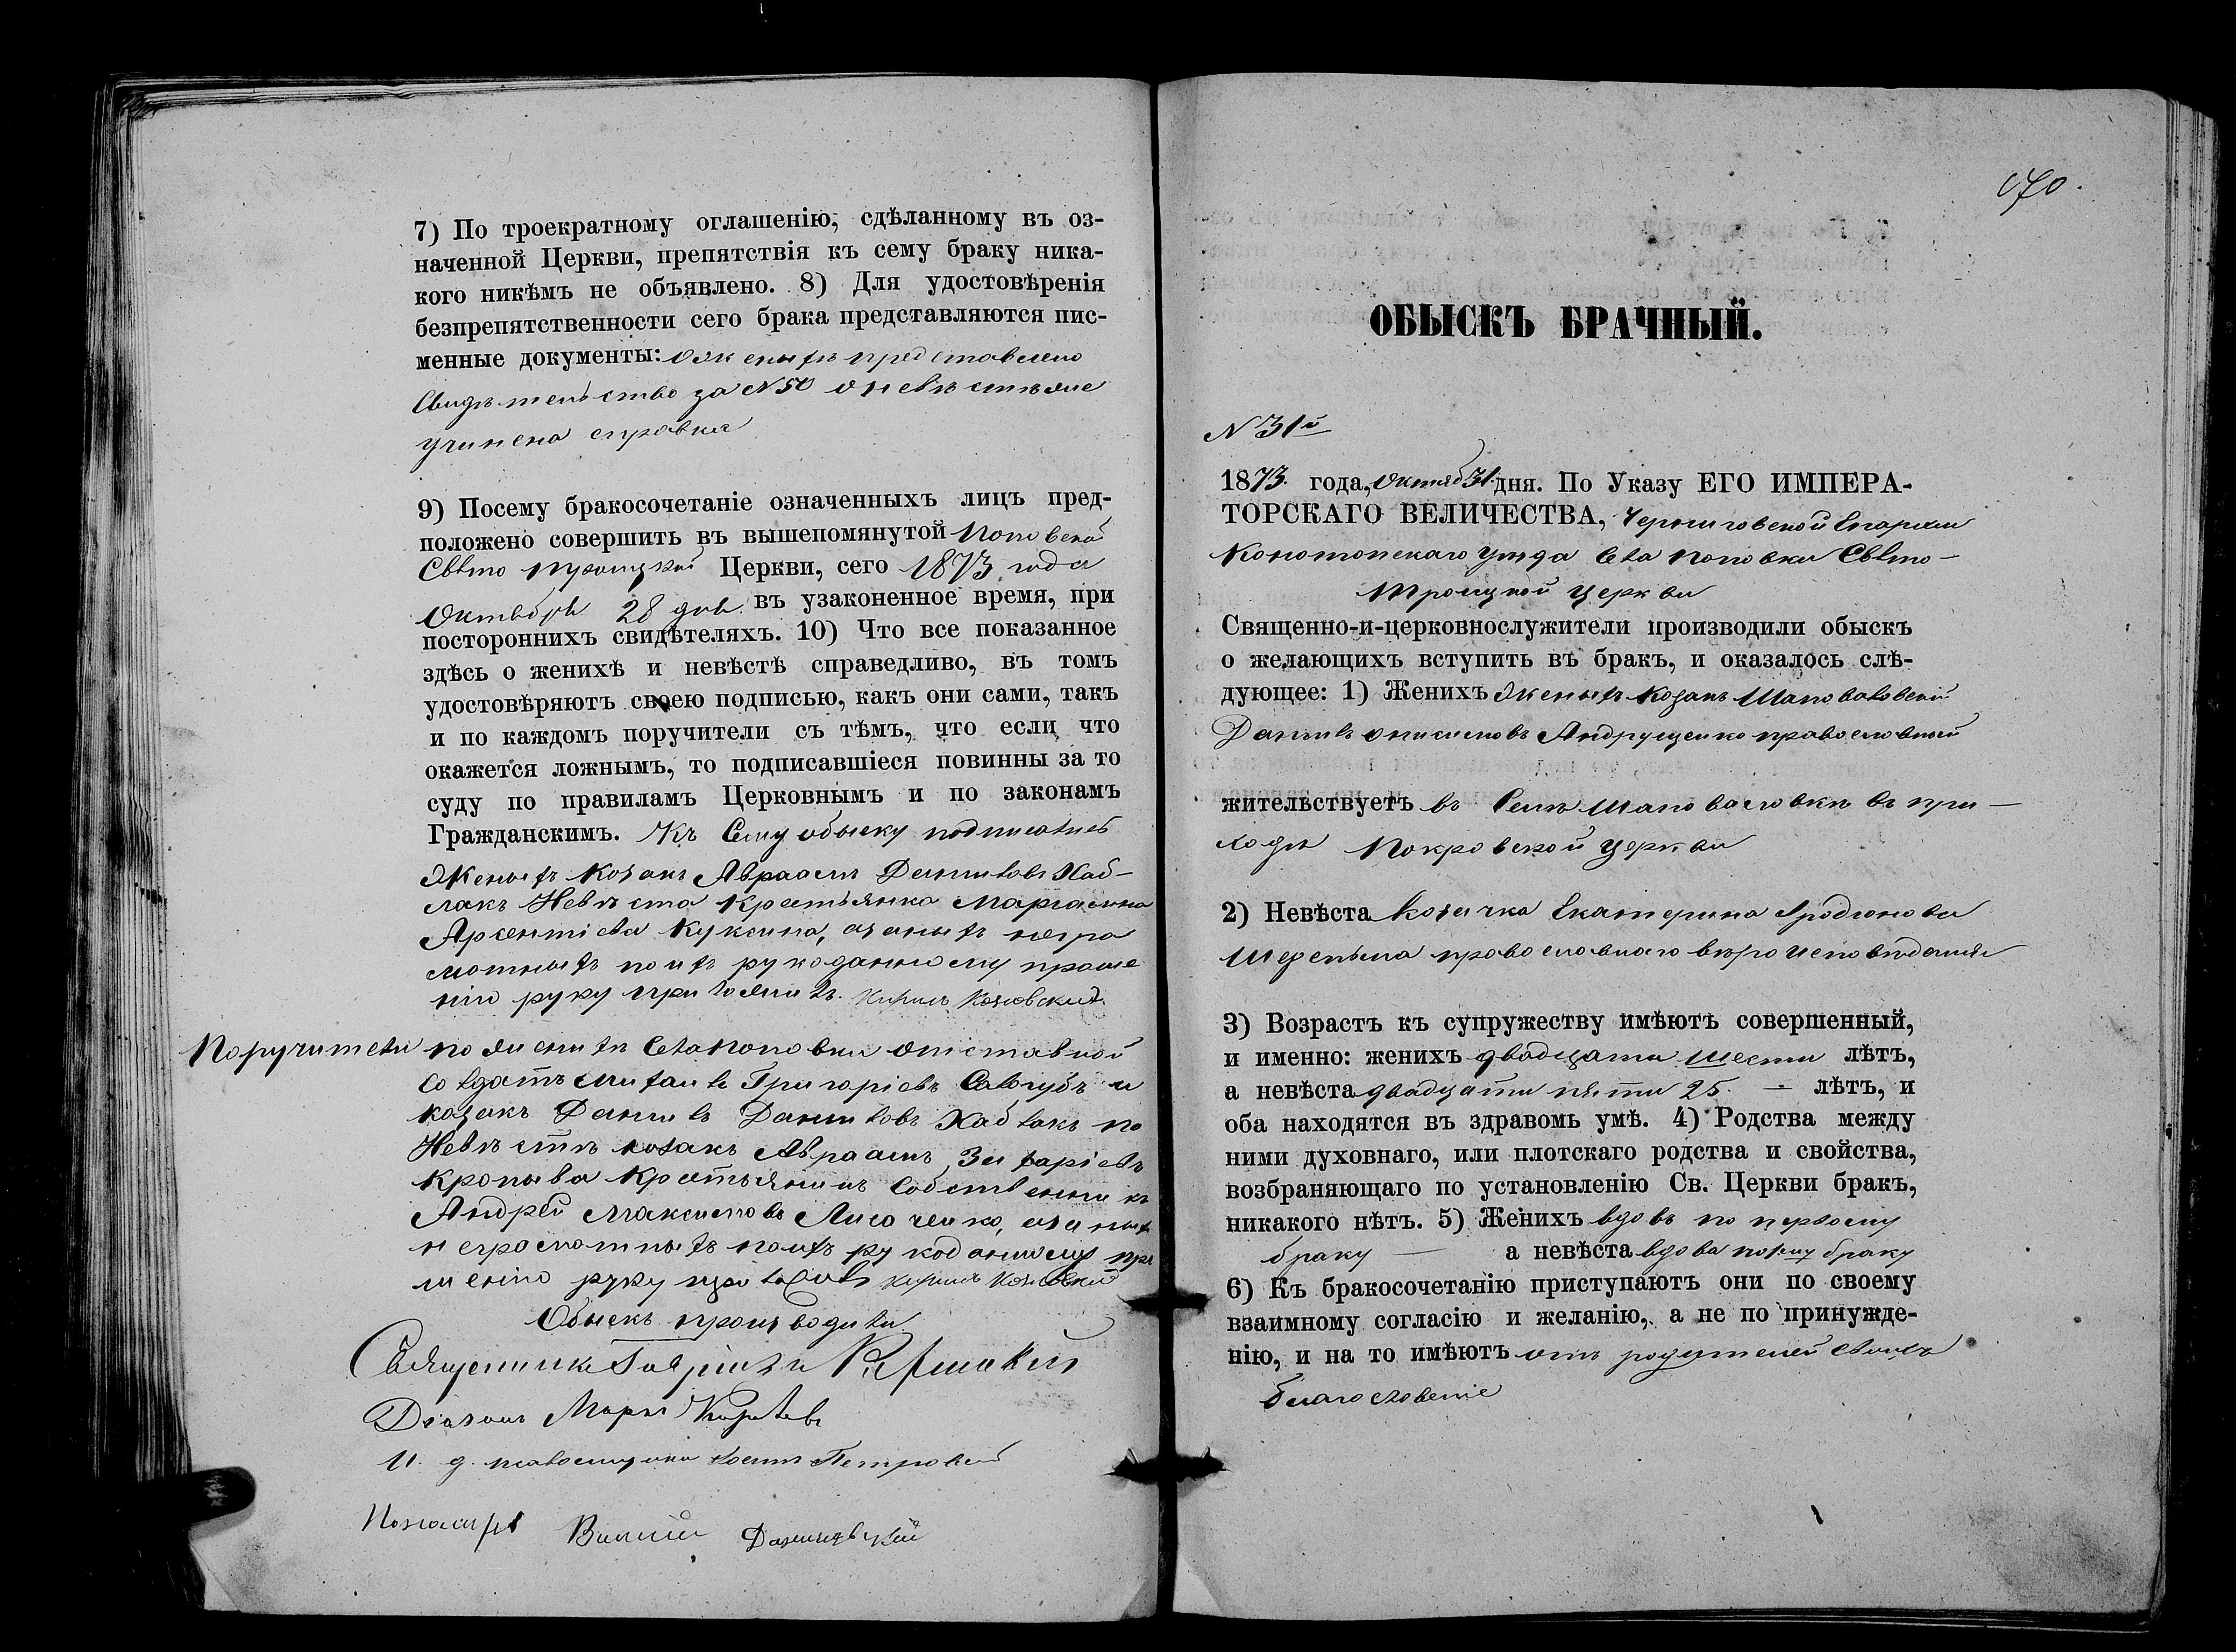 7) По троекратному оглашенію, сдѣланному въ оз-
наченной Церкви, препятствія къ сему браку ника-
кого никѣмъ не объявлено. 8) Для удостовѣренія
безпрепятственности сего брака представляются пис-
менные документы: о женихѣ представлено
Свидѣтельство за № 50 о невѣстѣ же
учинена справка
9) Посему бракосочетаніе означенныхъ лицъ пред-
положено совершить въ вышепомянутой Поповской
Свято Троицкой Церкви, сего 1873 года
Октября 28 дня въ узаконенное время, при
постороннихъ свидѣтеляхъ. 10) Что все показанное
здѣсь о женихѣ и невѣстѣ справедливо, въ томъ
удостовѣряютъ своею подписью, какъ они сами, такъ
и по каждомъ поручители съ тѣмъ, что если что
окажется ложнымъ, то подписавшіеся повинны за то
суду по правиламъ Церковнымъ и по законамъ
Гражданскимъ. Къ Сему обыску подписались
Женихъ козакъ Авраамъ Даниловъ Хаб-
лакъ Невѣста Крестьянка
Арсентіева Куксина, а за нихъ негра
мотныхъ по ихъ рукоданному проше
нію руку приложилъ Кирилъ Козловскій
Поручители по женихѣ Села Поповки отставной
солдатъ Михаилъ Григоріевъ Сологубъ и
козакъ Данилъ Даниловъ Хаблакъ по
Невѣстѣ козакъ Авраамъ Захаріевъ
Кропива Крестьянинъ Собственникъ
Андрей Максимовъ Лисоченко, а за нихъ
неграмотныхъ по ихъ рукоданному про
шенію руку приложилъ Кирилъ Козловскій
Обыскъ производили
Священникъ Гавріилъ
Діаконъ Маркъ
И. д. псаломщика Петровскій
Пономарь
170.
ОБЫСКЪ БРАЧНЫЙ.
№ 31й
1873 года, Октяб 31 дня. По Указу ЕГО ИМПЕРА-
ТОРСКАГО ВЕЛИЧЕСТВА, Черниговской Епархіи
Конотопскаго уѣзда Села Поповки Свято-
Троицкой Церкви
Священно-и-церковнослужители производили обыскъ
о желающихъ вступить въ бракъ, и оказалось слѣ-
дующее: 1) Женихъ Женихъ Козакъ Шаповаловскій
Данилъ Онисимовъ Андрущенко православный
жительствуетъ въ Селѣ Шаповаловкѣ въ при-
ходѣ Покровской Церкви
2) Невѣста Козачка Екатерина Іродіонова
православнаго вѣроисповѣданія
3) Возрастъ къ супружеству имѣютъ совершенный,
и именно: женихъ двадцати шести лѣтъ,
а невѣста двадцати пяти 25 - лѣтъ, и
оба находятся въ здравомъ умѣ. 4) Родства между
ними духовнаго, или плотскаго родства и свойства,
возбраняющаго по установленію Св. Церкви бракъ,
никакого нѣтъ. 5) Женихъ вдовъ по первому
браку — а невѣста вдова по 1му браку
6) Къ бракосочетанію приступаютъ они по своему
взаимному согласію и желанію, а не по принужде-
нію, и на то имѣютъ отъ родителей своихъ
благословеніе